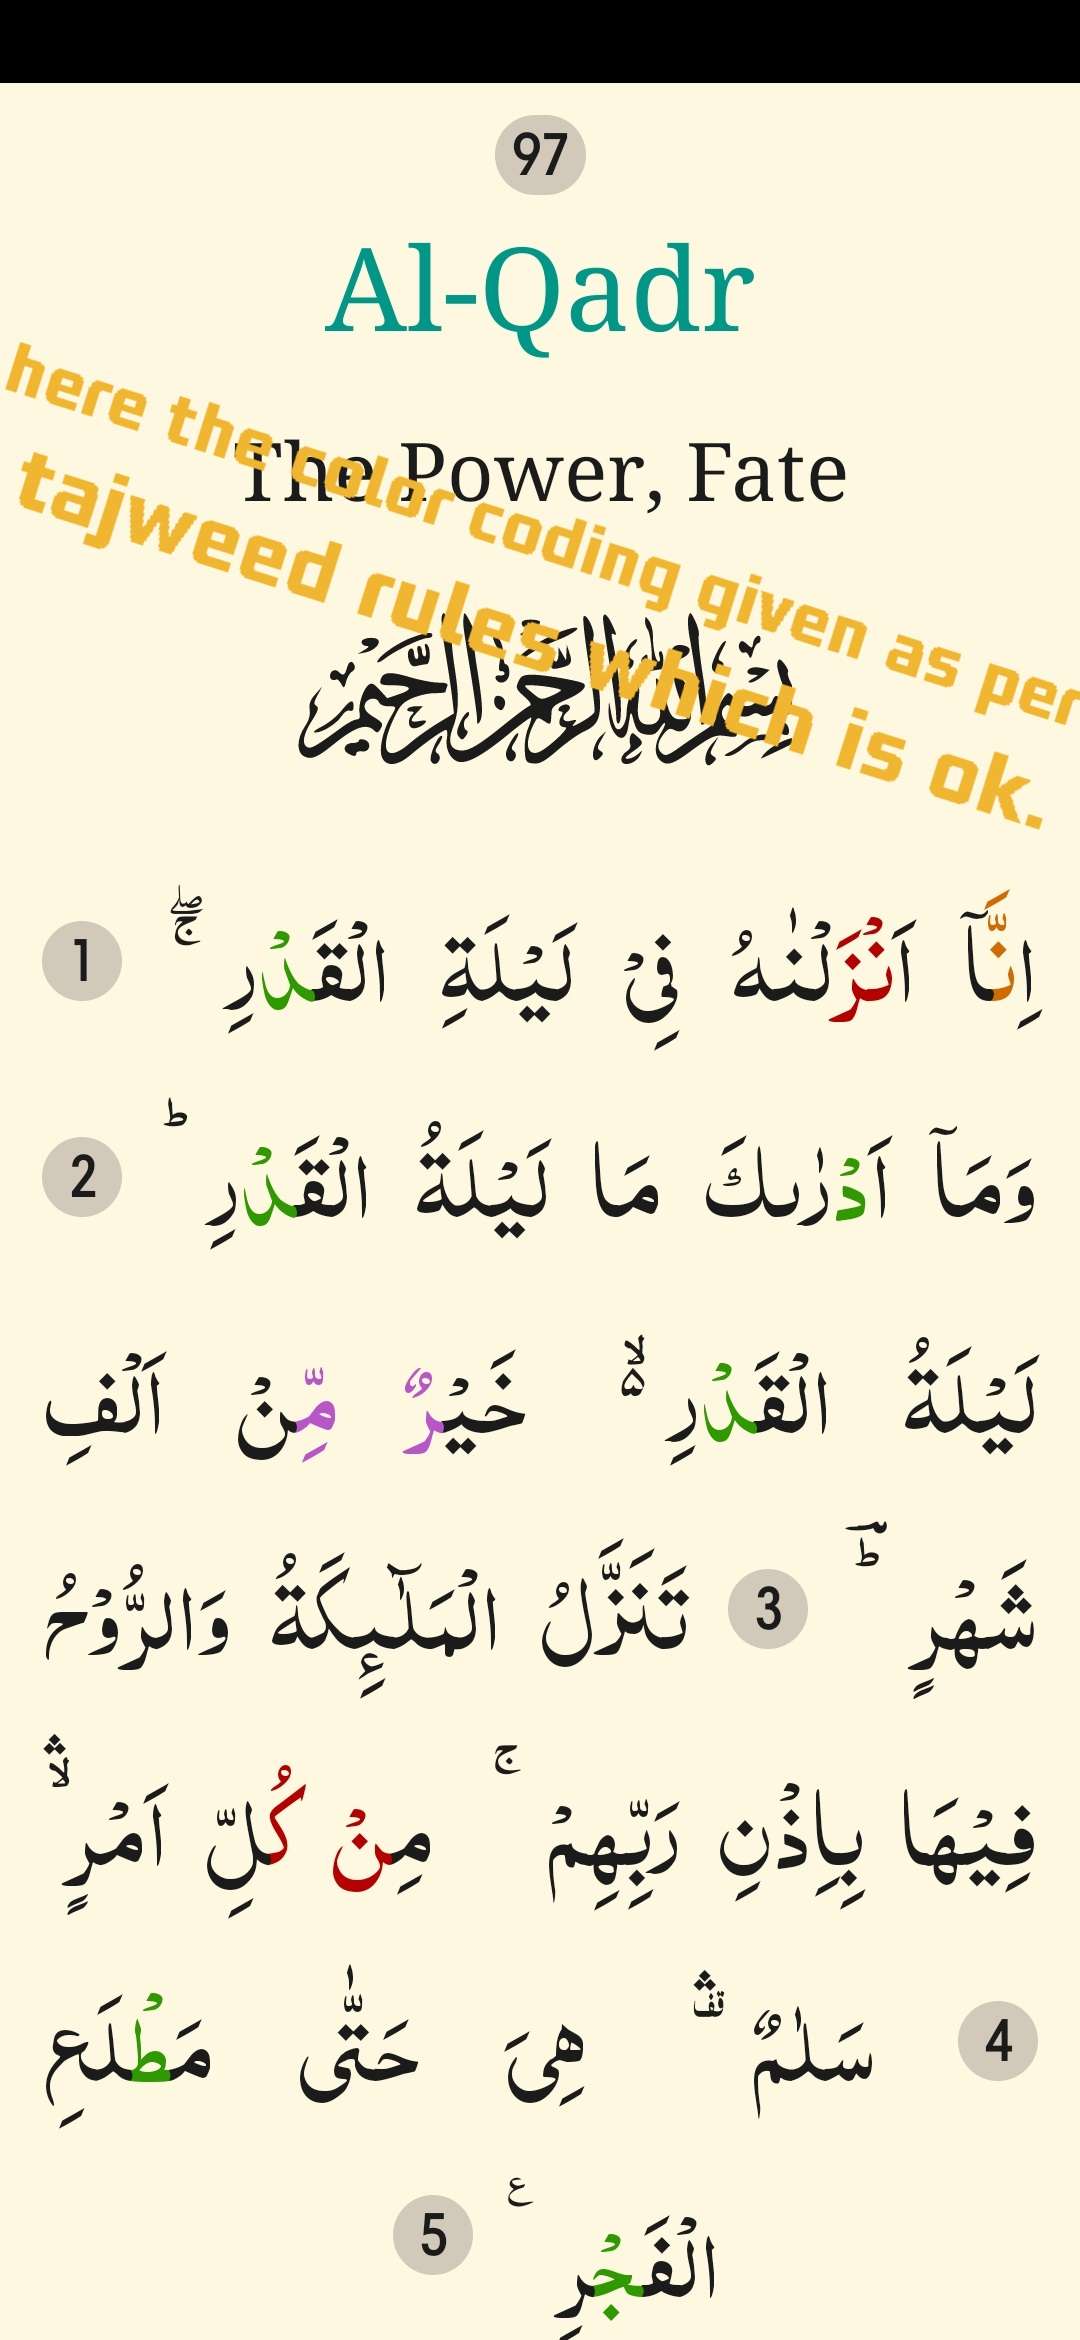 97
Al-Qadr
The Power, Fate
here the color coding given as per
tajweed rules which is ok.
بِسْمِ اللّٰهِ الرَّحْمٰنِ الرَّحِيْمِ
اِنَّآ اَنْزَلْنٰهُ فِىْ لَيْلَةِ الْقَدْرِ ۖۚ 1
وَمَآ اَدْرٰٮكَ مَا لَيْلَةُ الْقَدْرِؕ 2
لَيْلَةُ الْقَدْرِ ۙ۬ خَيْرٌ مِّنْ اَلْفِ
شَهْرٍؕؔ 3 تَنَزَّلُ الْمَلٰٓٮِٕكَةُ وَالرُّوْحُ
فِيْهَا بِاِذْنِ رَبِّهِمْۚ مِنْ كُلِّ اَمْرٍۙۛ
4 سَلٰمٌ ۛقف هِىَ حَتّٰى مَطْلَعِ
الْفَجْرِ ع 5